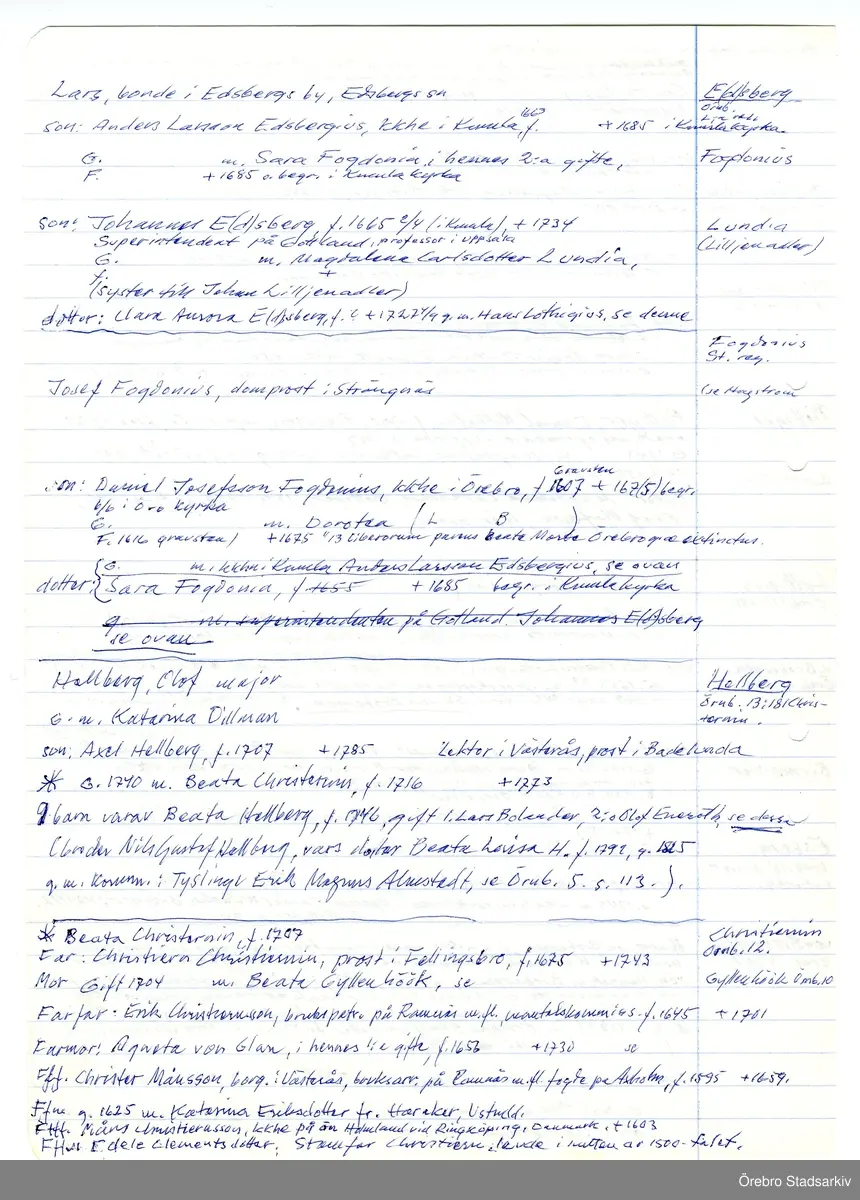 Lars, bonde i Edsbergs by, Edsbergs sn
E(d)sberg
Örub.
son: Anders Larsson Edsbergius, kkhe i Kumla, f. 1603 + 1685 i Kumla kyrka.
G. m. Sara Fogdonia, i hennes 2:a gifte,
Fogdonius
F. + 1685 o. begr. i Kumla kyrka
son: Johannes E(d)sberg, f. 1665 2/4 (i Kumla), + 1734
Lundia
Superintendent på Gotland, professor i Uppsala
(Lilljenadler)
G. m. Magdalena Carlsdotter Lundia,
f. +
(syster till Johan Lilljenadler)
dotter: Clara Aurora E(d)sberg, f. + 1727 g. m. Hans Lothigius, se denne
Fogdonius
St. reg.
Josef Fogdonius, domprost i Strängnäs
(se Hagström
Gravsten
son: Daniel Josefsson Fogdonius, kkhe i Örebro, f 1607 + 167(5) begr.
i Öro kyrka
G. m. Dorotea (L B )
F. 1616 gravsten) + 1675 "13 liberorum Beata Örebro
G. m. kkhe i Kumla Anders Larsson Edsbergius, se ovan
dotter: Sara Fogdonia, f 1655 + 1685 begr. i Kumla kyrka
g. m. superintendenten på Gotland. Johannes E(d)sberg
se ovan
Hellberg, Olof major
Hellberg
Örub. 13:181 Chris-
ternin.
G. m. Katarina Dillman
son: Axel Hellberg, f. 1707 + 1785 Lektor i Västerås, prost i Badelunda
* G. 1740 m. Beata Christernin, f. 1716 + 1773
9 barn varav Beata Hellberg, f. 1746, gift 1. Lars Bolander, 2:o Olof Eneroth, se dessa
(broder Nils Gustaf Hellberg, vars dotter Beata Lovisa H. f. 1792, g. 1815
g. m. komm. i Tyslinge Erik Magnus Almstadt, se Örub. 5. s. 113.).
* Beata Christernin, f. 1707
Christiernin
Örub. 12.
Far: Christiern Christiernin, prost i Fellingsbro, f. 1675 + 1743
Mor Gift 1704 m. Beata Gyllenhöök, se
Gyllenhöök Örub. 10
Farfar: Erik Christiernsson, brukspatr. på Ramnäs m.fl., mantalskommiss. f. 1645 + 1701
Farmor: Agneta von Glan, i hennes 1:e gifte, f. 1656 + 1730 se
Fff. Christer Månsson, borg. i Västerås, bruksarr. på Ramnäs m.fl. fogde på f. 1595 + 1659.
Ffm g. 1625 m. Katarina Eriksdotter fr. Haraker, Västml.
Ffff. Måns Christiernsson, kkhe på ön Holmland vid Ringköping, Danmark. + 1603
Edele Clementsdotter; Stamfar Christiern, levde i mitten av 1500-talet.
Örebro Stadsarkiv